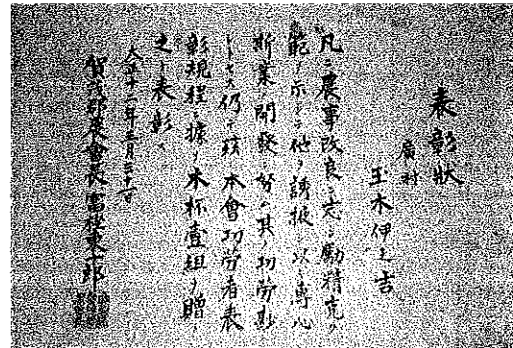 表彰状
廣村
玉木伊之吉
夙ニ農事改良ニ志シ勵精克ク
範ヲ示シ他ヲ誘掖シ以テ専心
斯業ノ開發ニ努ム其ノ功労尠
シトセス仍テ茲ニ本會功労者表
彰規程ニ據リ木杯壹組ヲ贈リ
之ヲ表彰ス
大正十一年三月三十日
賀茂郡農會長富樫東十郎